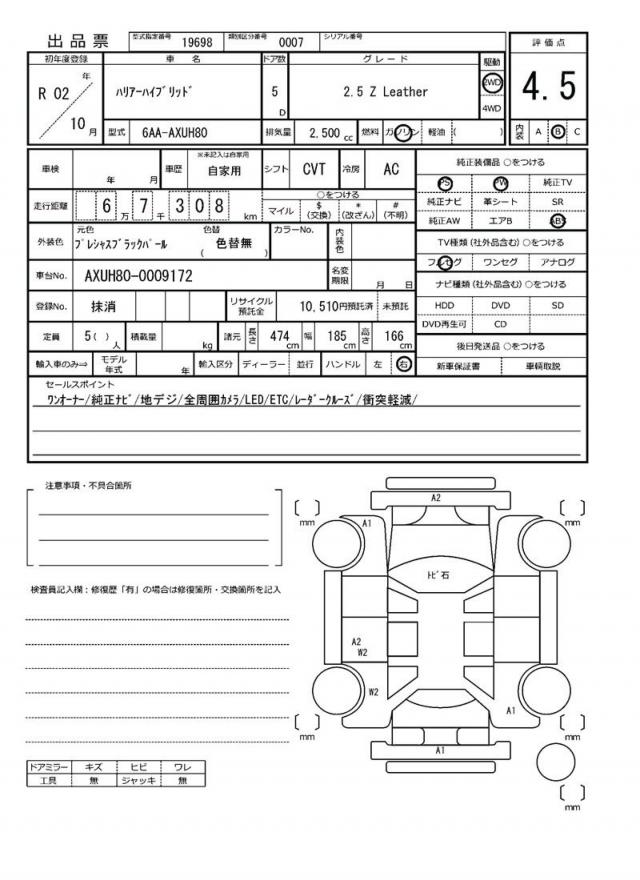 出品票 型式指定番号 19698 類別区分番号 0007 シリアル番号
初年度登録 車名 ドア数 グレード 駆動 評価点
R 02 年 10 月 ﾊﾘｱｰﾊｲﾌﾞﾘｯﾄﾞ 5 D 2.5 Z Leather 2WD 4WD 4.5
型式 6AA-AXUH80 排気量 2,500 cc 燃料 ガソリン 軽油 ( ) 内装 A B C
車検 年 月 車歴 ※未記入は自家用 自家用 シフト CVT 冷房 AC
走行距離 6 万 7 千 3 0 8 km ○をつける マイル $ (交換) * (改ざん) # (不明)
外装色 元色 ﾌﾟﾚｼｬｽﾌﾞﾗｯｸﾊﾟｰﾙ 色替 ( 色替無 ) カラーNo. 内装色
車台No. AXUH80-0009172 名変期限 月 日
登録No. 抹消 リサイクル預託金 10,510円預託済 未預託
定員 5( ) 人 積載量 kg 諸元 長さ 474 cm 幅 185 cm 高さ 166 cm
輸入車のみ⇒ モデル年式 年 輸入区分 ディーラー 並行 ハンドル 左 右
純正装備品 ○をつける
PS PW 純正TV
純正ナビ 革シート SR
純正AW エアB ABS
TV種類 (社外品含む) ○をつける
フルセグ ワンセグ アナログ
ナビ種類 (社外品含む) ○をつける
HDD DVD SD
DVD再生可 CD
後日発送品 ○をつける
新車保証書 車輌取説
セールスポイント
ﾜﾝｵｰﾅｰ/純正ﾅﾋﾞ/地デジ/全周囲ｶﾒﾗ/LED/ETC/ﾚｰﾀﾞｰｸﾙｰｽﾞ/衝突軽減/
注意事項・不具合箇所
検査員記入欄：修復歴「有」の場合は修復箇所・交換箇所を記入
ドアミラー キズ ヒビ ワレ
工具 無 ジャッキ 無
A2
[ ] mm [ ] mm
A1
ﾄﾋﾞ石
A2
W2
W2
A1
[ ] mm [ ] mm
A1
[ ] mm